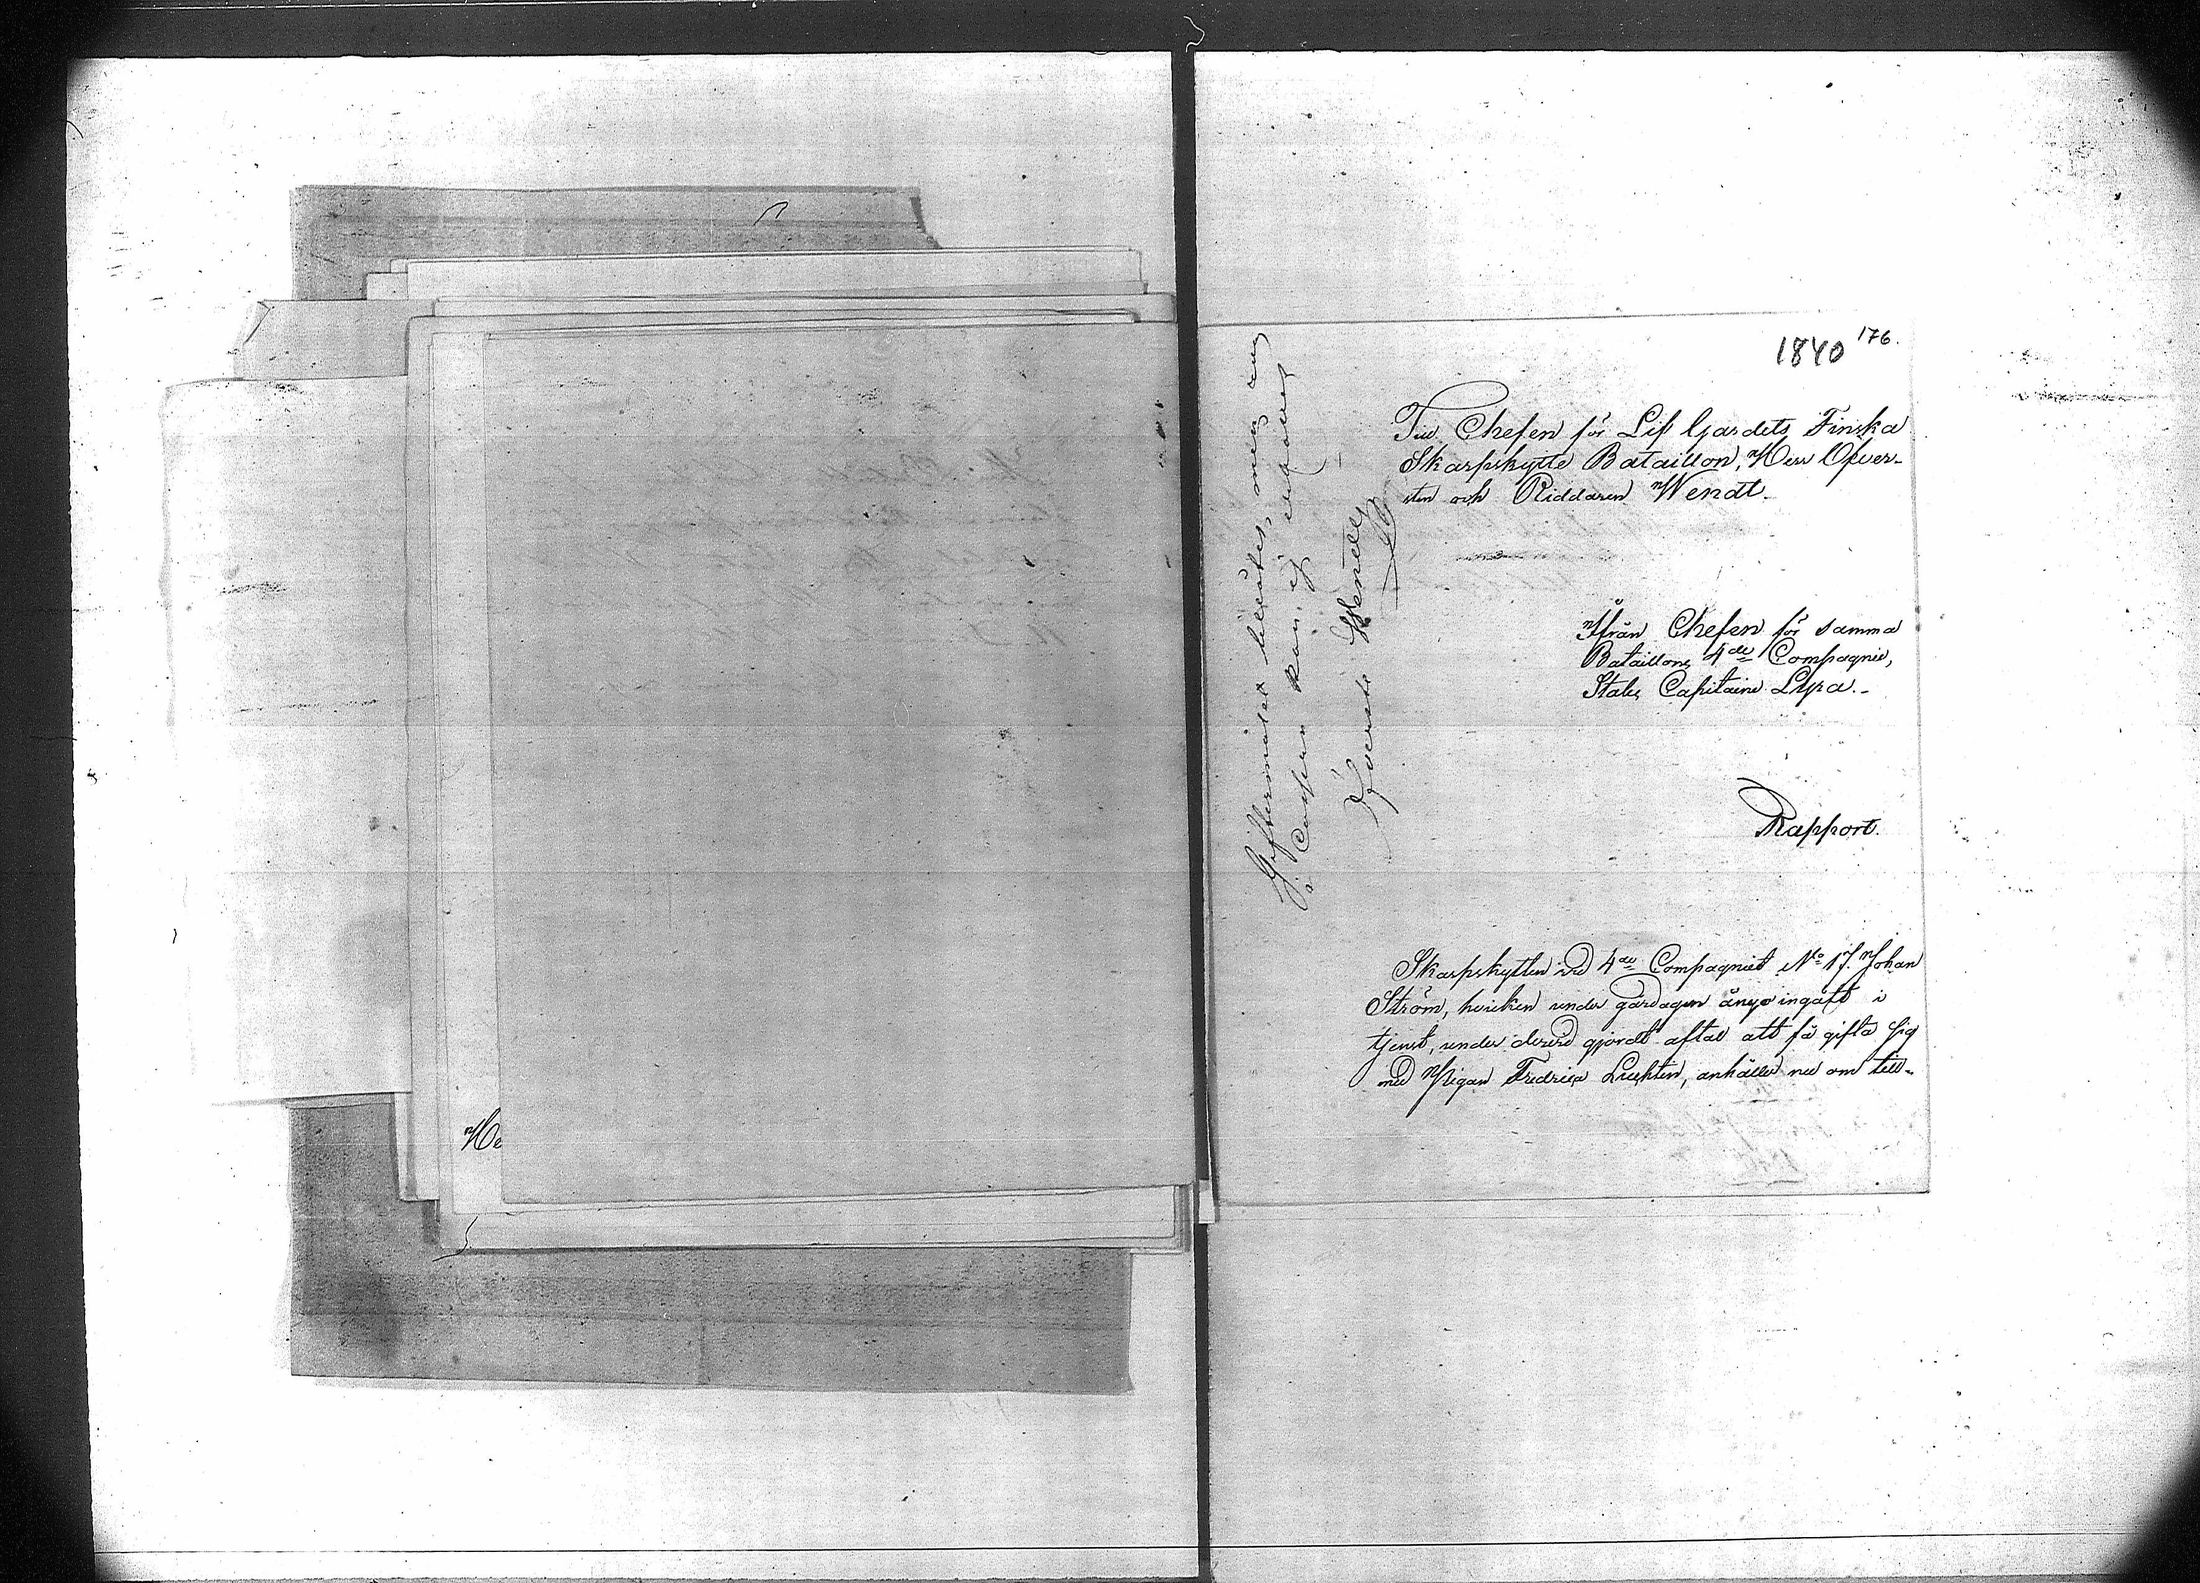 1840 176.
Till Chefen för Lif Gardets Finska
Skarpskytte Bataillon, Herr Öfver-
sten och Riddaren Wendt.
Ifrån Chefen för samma
Bataillons 4de Compagnie,
Stabs Capitaine Lyra.-
Rapport.
Skarpskytten vid 4de Compagniet No 17. Johan
Ström, hvilken under gårdagen ånyo ingått i
tjenst, under dervid gjordt aftal att få gifta sig
med Pigan Fredrica, anhåller nu om till-
Giftermålet tillåtes, men rum
i Casern kan ej
Öfverste Wendt
He